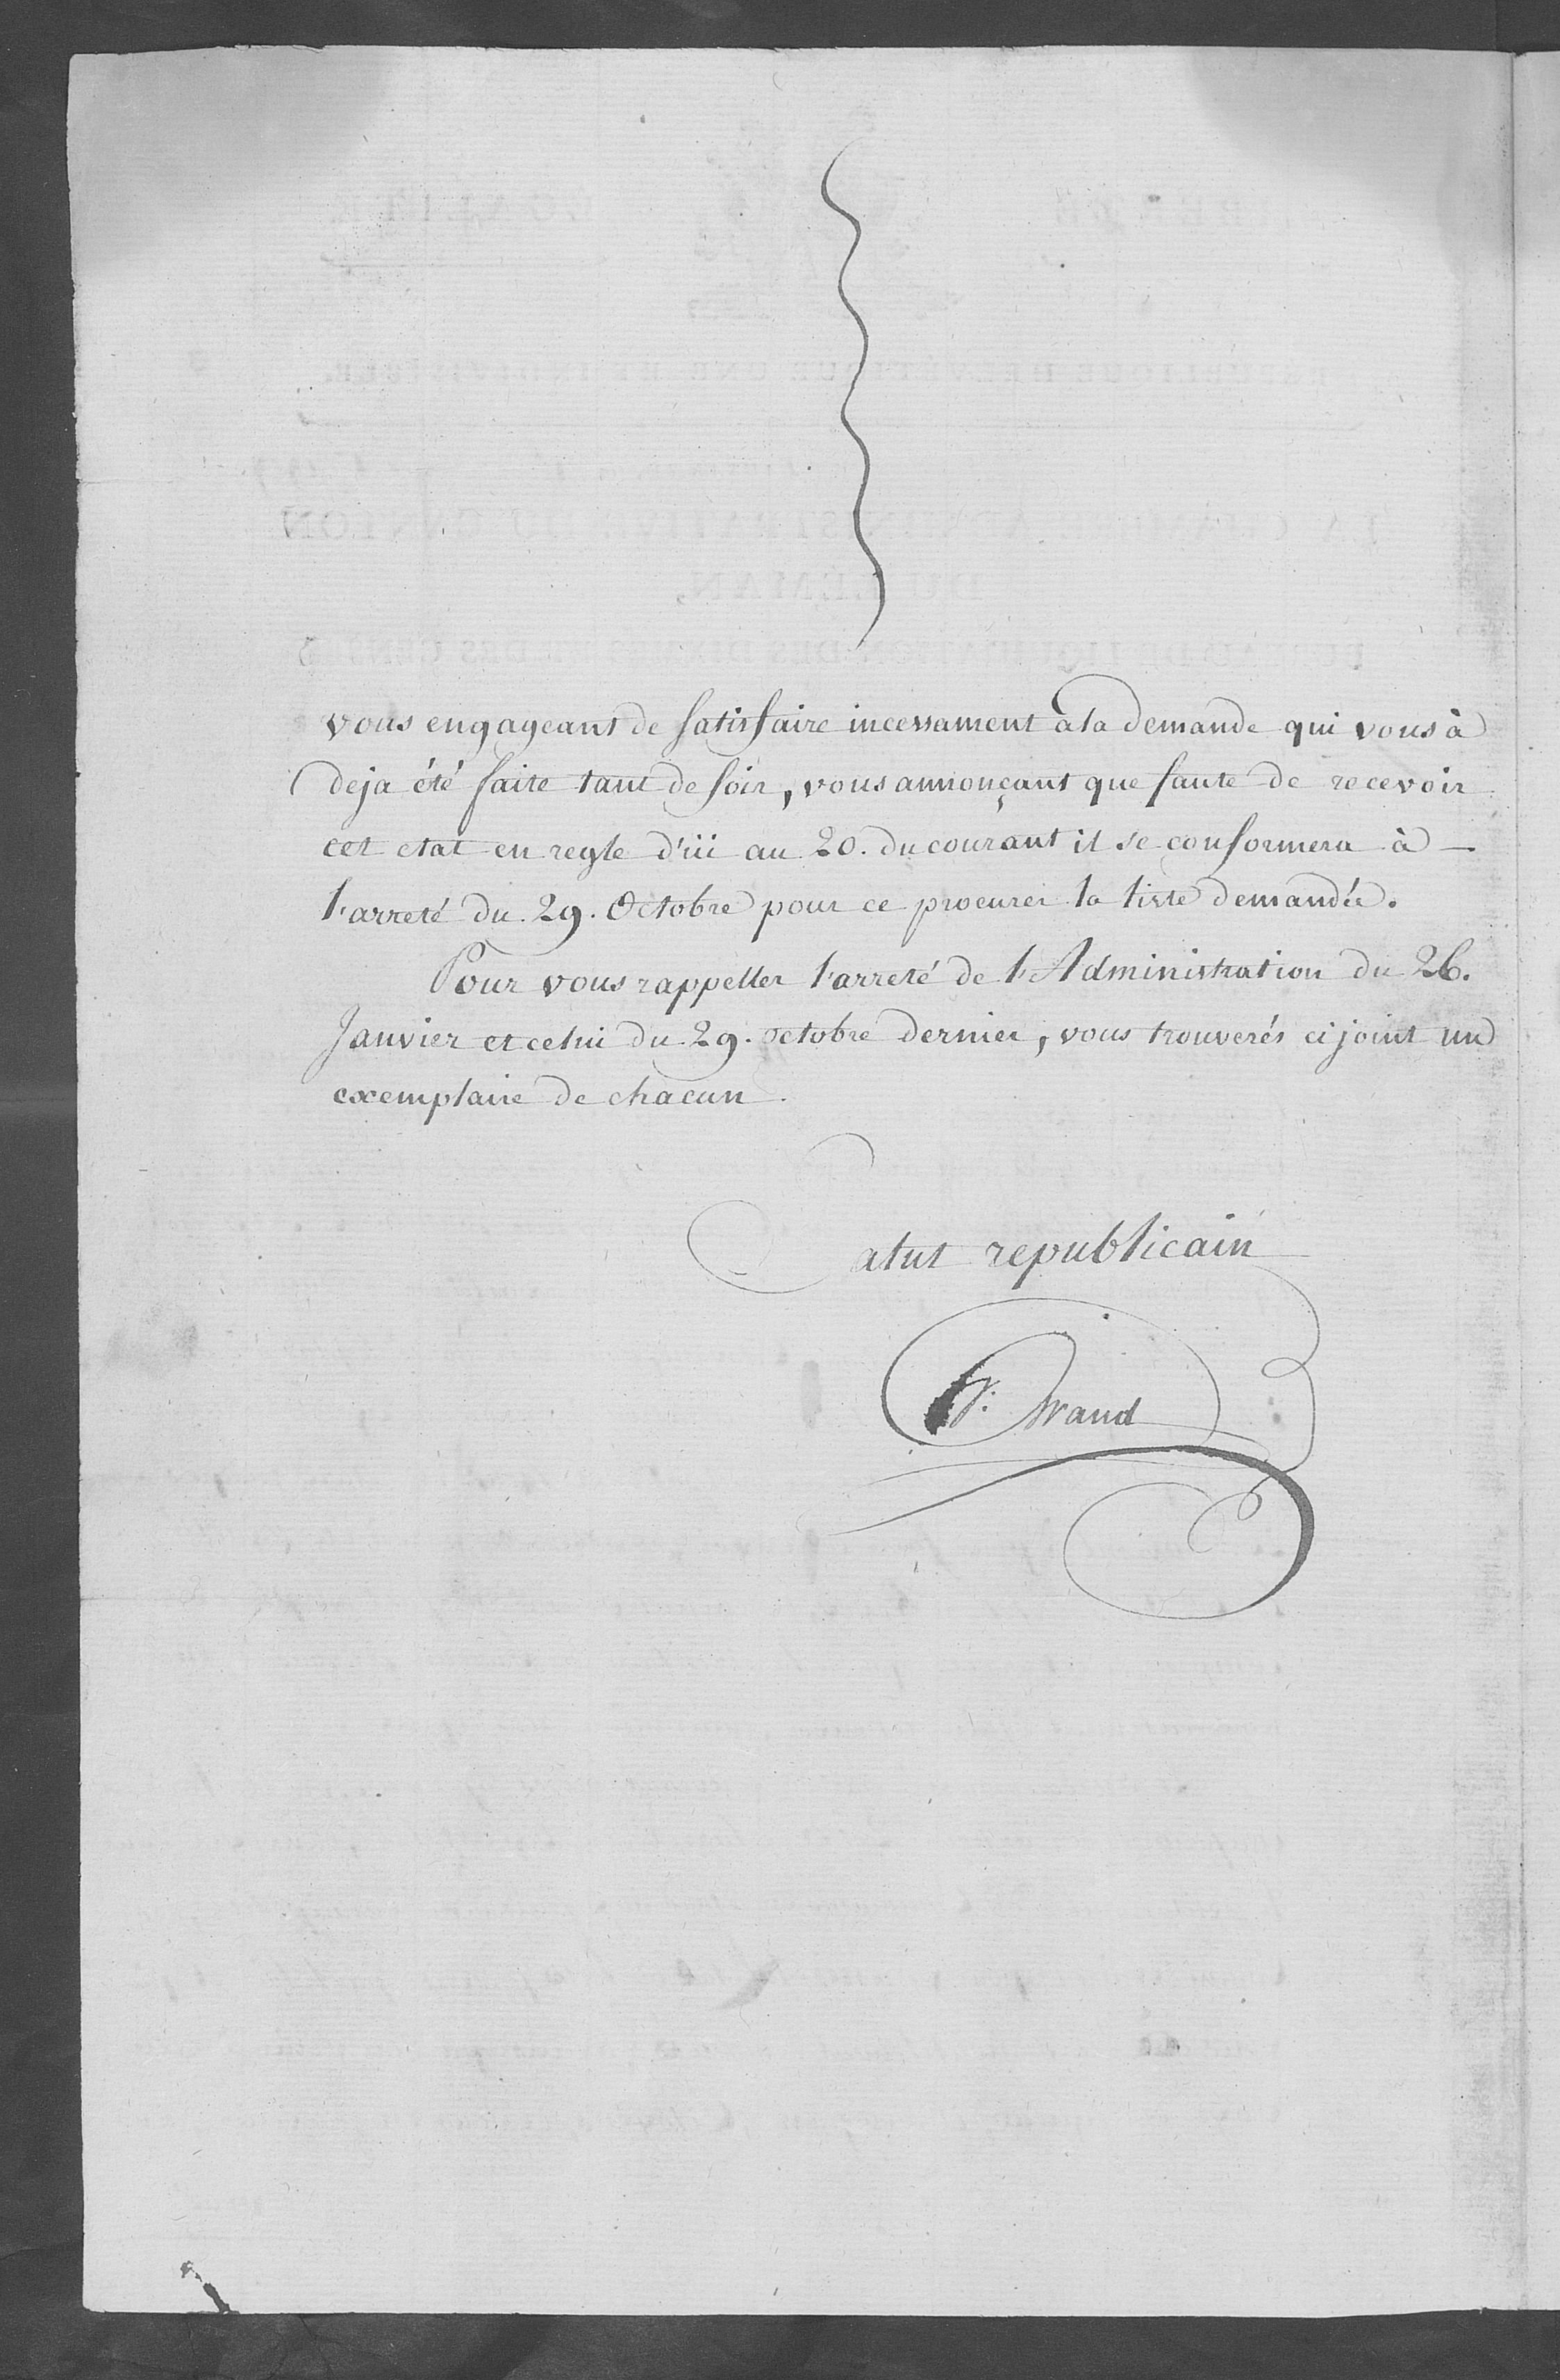 vous engageant de satisfaire incessament à la demande qui vous à
deja été faite tant de fois, vous annonçant que faute de recevoir
cet etat en regle d'ici au 20. du courant il se conformera à —
l'arreté du 29. Octobre pour ce procurer la liste demandée.
Pour vous rappeller l'arreté de l'Administration du 26.
Janvier et celui du 29. octobre dernier, vous trouverés ci joint un
exemplaire de chacun.
Salut republicain